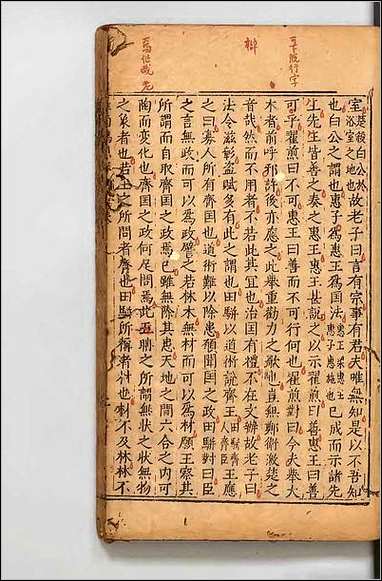 室楚殺白公於浴室之地也故老子曰言有宗事有君夫唯無知是以不吾知
也白公之謂也惠子爲惠王爲国法惠王梁惠王惠子惠施也已成而示諸先
生先生皆善之奏之惠王惠王甚說之以示翟煎曰善惠王曰善
可乎翟煎曰不可惠王曰善而不可行何也翟煎對曰今夫舉大
木者前呼邪許後亦應之此舉重勸力之歌也豈無鄭衛激楚之
音哉然而不用者不若此其宜也治国有禮不在文辯故老子曰
法令滋彰盗賊多有此之謂也田駢以道術說齊王田駢齊人齊臣王應
之曰寡人所有齊国也道術難以除患願聞国之政田駢對曰臣
之言無政而可以爲政譬之若林木無材而可以爲材願王察其
所謂而自取齊国之政焉已雖無除其患天地之間六合之内可
陶而變化也齊国之政何足問焉此聃之所謂無状之状無物
之象者也若王之所問者齊也田駢所稱者材也材不及林林不